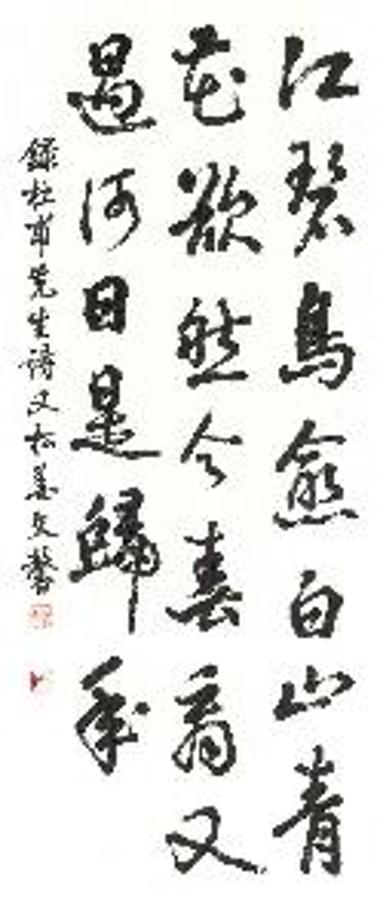 江碧鳥愈白山青
花欲然今春看又
過何日是歸年
錄杜甫先生詩又松姜文馨